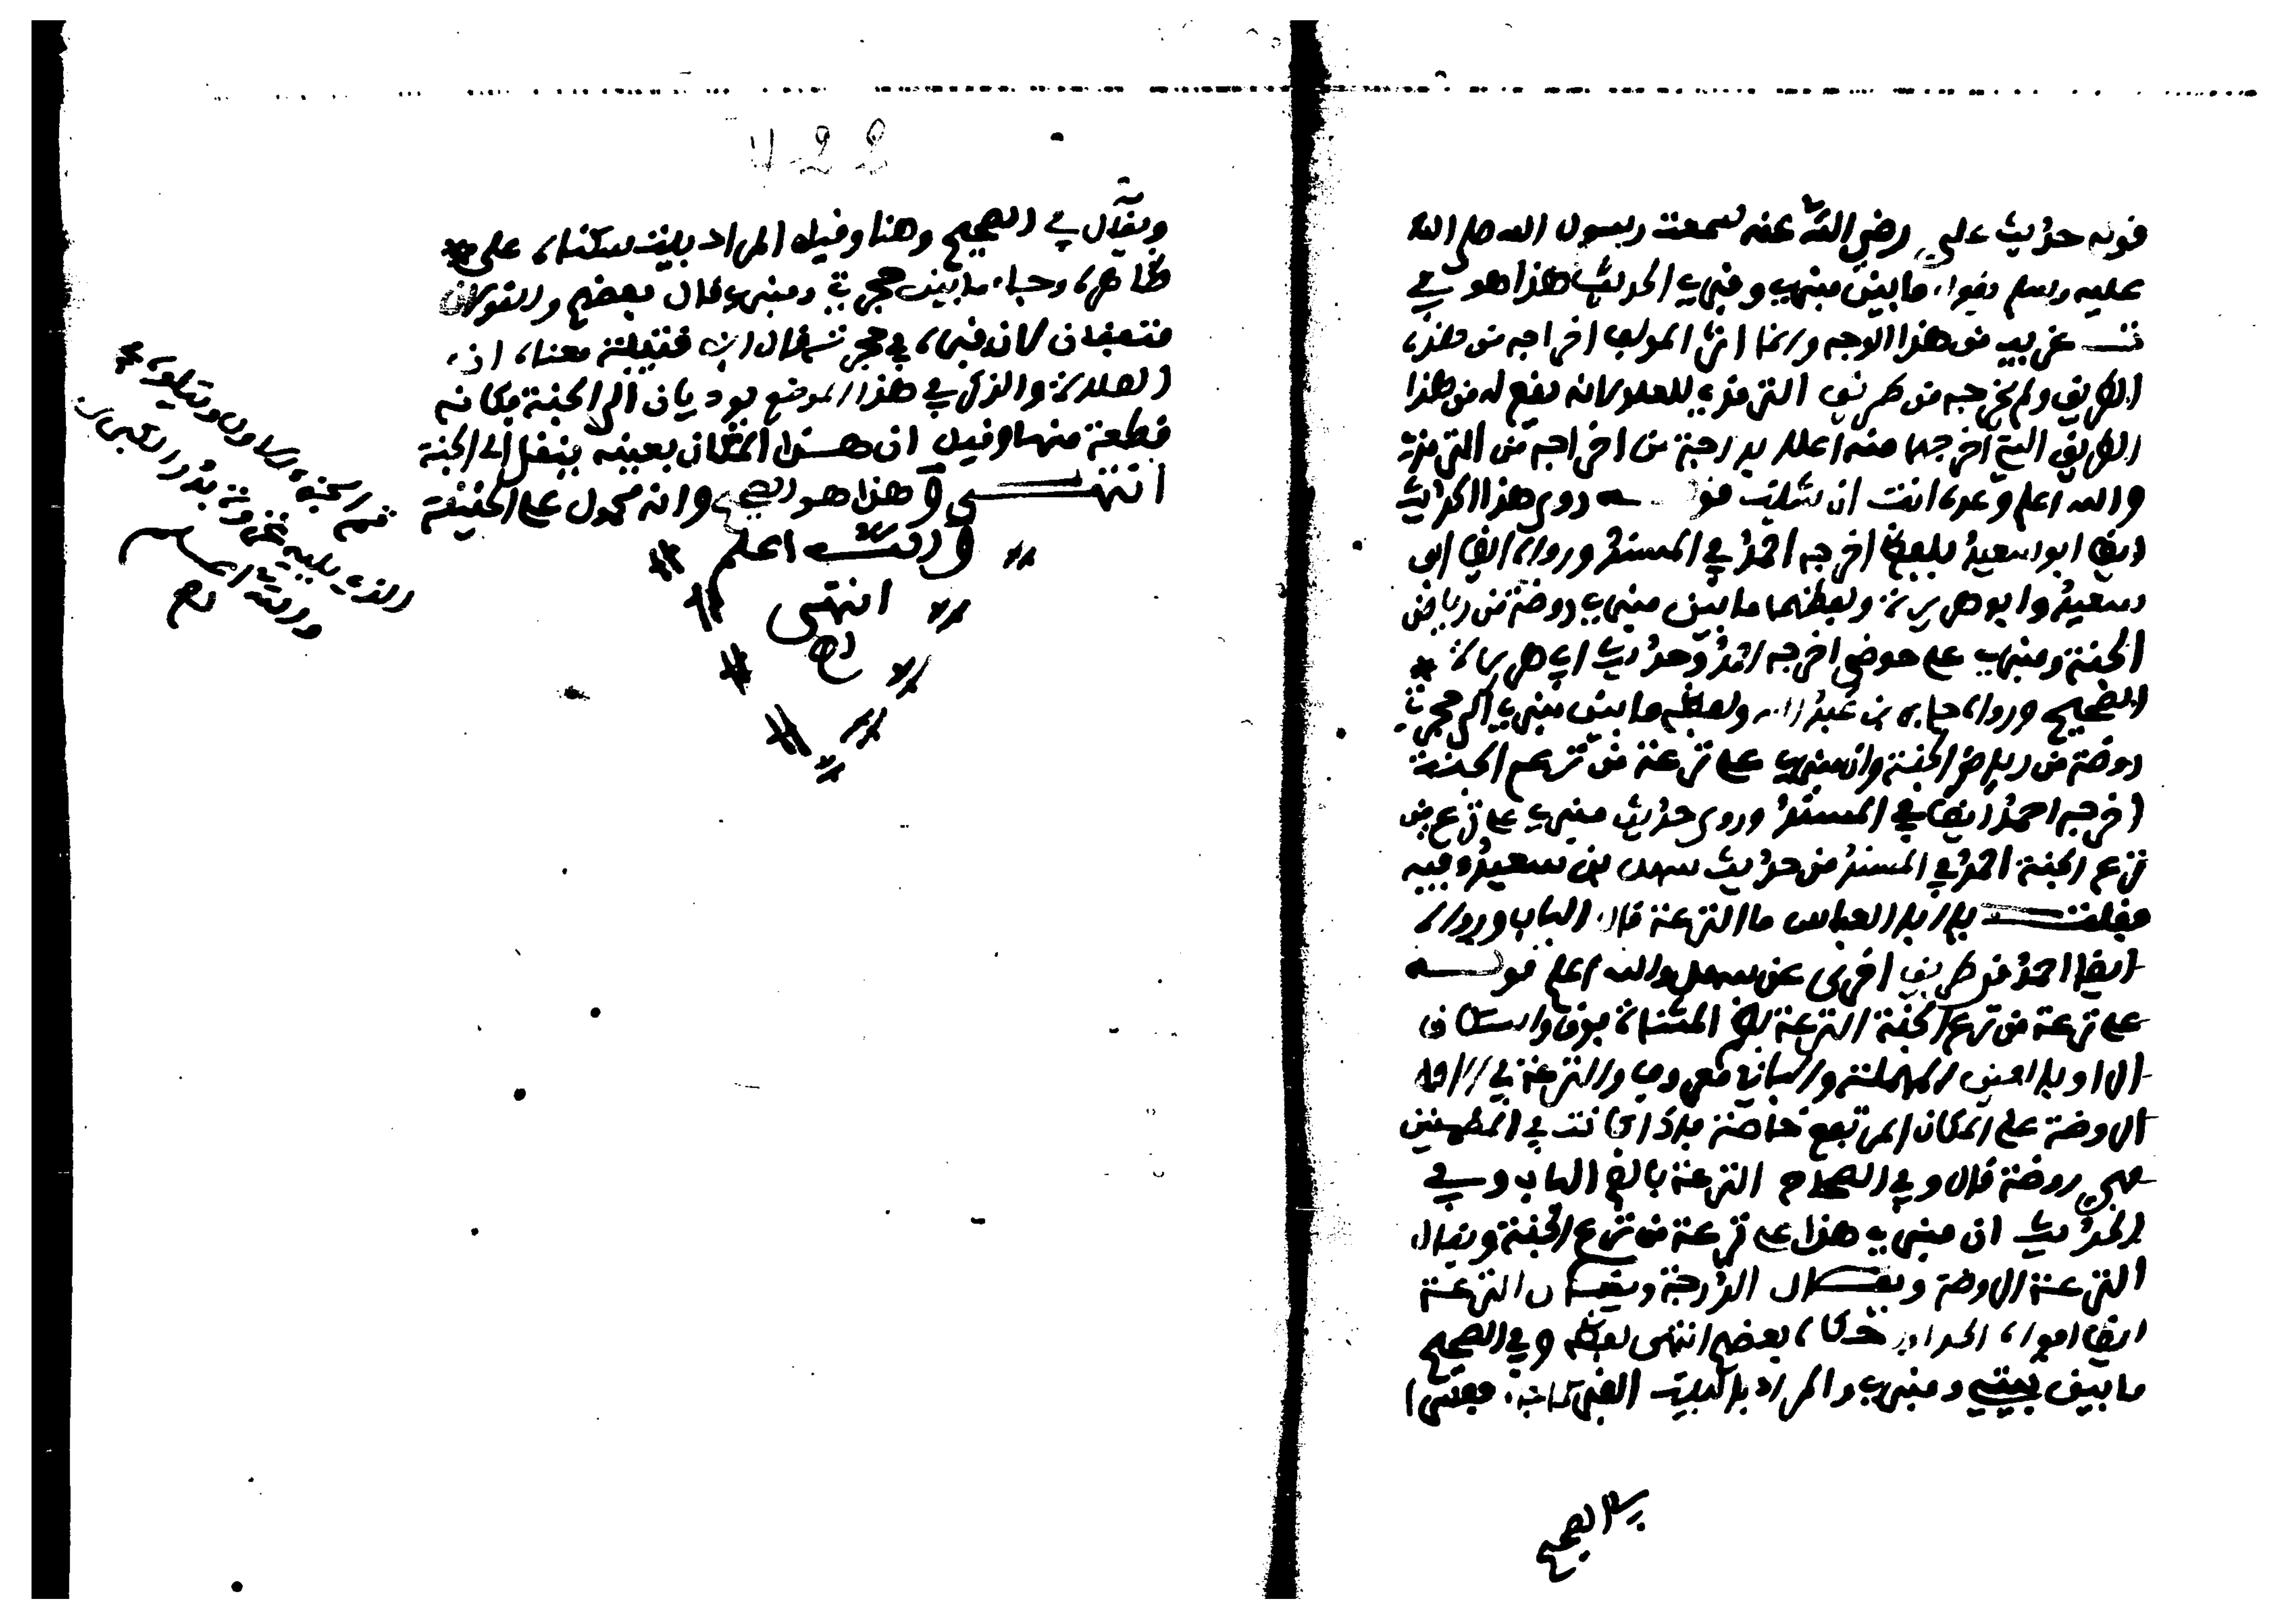 قوله حديث علي رضي الله عنه سمعت رسول الله صلى الله
عليه وسلم يقول ما بين منبري وقبري الحديث هذا هو في
ت غريب من هذا الوجه وإنما اثر المولف اخراجه من هذه
الطريق ولم يخرجه من طريق الترمذي للعلو لانه يقع له من هذا
الطريق التي اخرجها منه اعلا بدرجة من اخراجه من الترمذي
والله اعلم وعده انت ان شئت قوله روى هذا الحديث
ايضا ابو سعيد بلفظ اخرجه احمد في المسند ورواه ايضا ابي
سعيد وابو هريرة ولفظهما ما بين منبري روضة من رياض
الجنة ومنبري على حوضي اخرجه احمد وحديث ابي هريرة في
الصحيح ورواه جابر بن عبد الله ولفظه ما بين منبري الى حجرتي
روضة من رياض الجنة وان منبري على ترعة من ترع الجنة
اخرجه احمد ايضا في المسند وروى حديث منبري على ترع من
ترع الجنة احمد في المسند من حديث سهل بن سعيد وفيه
فقلت يا ابا العباس ما الترعة قال الباب ورواه
ايضا احمد من طريق اخرى عن سهل والله اعلم قوله
على ترعة من ترع الجنة الترعة بضم المثناة فوق واسكان
الراء وبالعين المهملة والباني معروف والترعة في الاصل
الروضة على المكان المرتفع خاصة فاذا كانت في المطمئن
فهي روضة قال وفي الصحاح الترعة بالضم الباب وفي
الحديث ان منبري هذا على ترعة من ترع الجنة ويقال
الترعة الروضة ويقال الدرجة ويقال الترعة
ايضا افواه الجداول حكاه بعضهم انتهى لفظه وفي الصحيح
ما بين بيتي ومنبري والمراد بالبيت القبر كما جاء مفسرا
في الصحيح
ويقال في الصحيح وهنا وقيل المراد ببيت سكناه على
ظاهره وجاء ما بين حجرتي ومنبري قال بعضهم والقولان
متفقان لان قبره في حجرته قال ابن قتيبة معناه ان
الصلاة والذكر في هذا الموضع يوديان الى الجنة فكانه
قطعة منها وقيل ان هذا المكان بعينه ينقل الى الجنة
انتهى وهذا هو الصحيح وانه محمول على الحقيقة
والله اعلم
انتهى